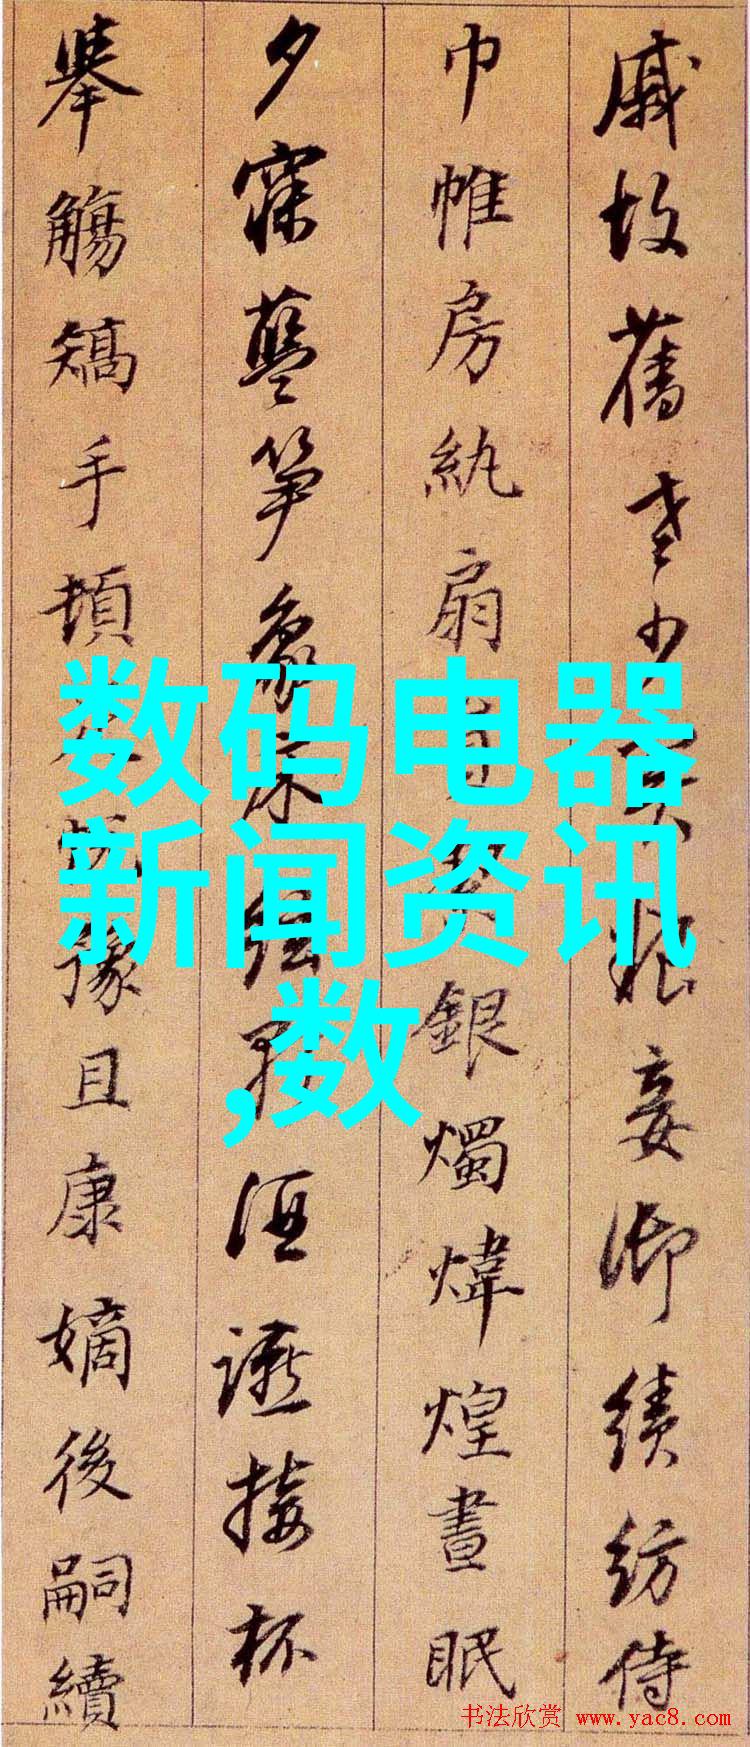 戚故舊老少粮妾御績紡侍
巾帷房紈扇銀燭煒煌晝眠
夕寐藍笋象床絃歌酒讌接杯
舉觴矯手頓豫且康嫡後嗣續
数码电器
新闻资讯
,数
书法欣赏 www.yac8.com